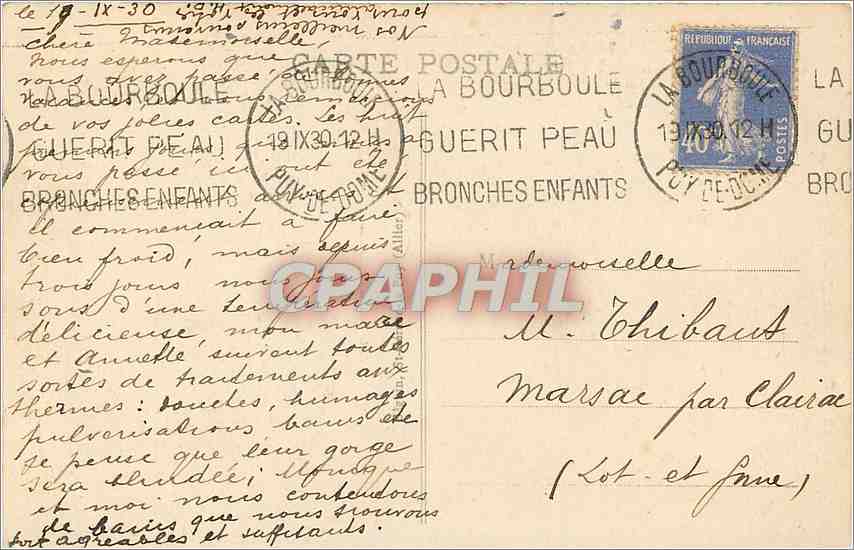 le 19-IX-30
Chère Mademoiselle,
nous esperons que
vous avez passé de bonnes
vacances, et vous remercions
de vos jolies cartes. Les huit
premiers jours que nous
vous passé ici ont été
Il commençait à faire
bien froid, mais depuis
trois jours nous jouis
sons d'une température
délicieuse, mon mari
et Annette, suivent toutes
sortes de traitements aux
thermes: douches, humages
pulverisations bains etc
je pense que leur gorge
sera blindée; Monique
et moi nous contentons
de bains que nous trouvons
fort agréables et suffisants.
Nos meilleurs souvenirs
pour
CARTE POSTALE
LA BOURBOULE
GUERIT PEAU
BRONCHES ENFANTS
LA BOURBOULE
19 IX 30. 12 H
PUY-DE-DOME
LA BOURBOULE
GUERIT PEAU
BRONCHES ENFANTS
REPUBLIQUE FRANÇAISE
40
POSTES
LA BOURBOULE
19 IX 30. 12 H
PUY-DE-DOME
LA
GU
BRO
(Allier)
CPAPHIL
Mademoiselle
M. Thibaut
Marsac par Clairac
(Lot-et-Garne)